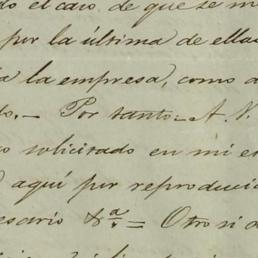 do el caso, de que se m
por la última de ella
a la empresa, como a
do.— Por tanto= A. V.
o solicitado en mi es
aquí por reproduci
esario &ª.= Otro si d